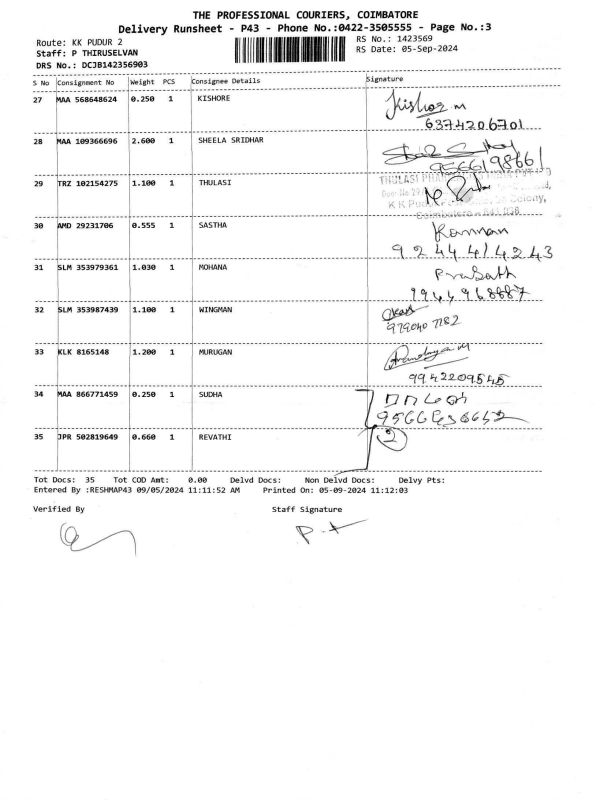 THE PROFESSIONAL COURIERS, COIMBATORE
Delivery Runsheet - P43 - Phone No.:0422-3505555 - Page No.:3
Route: KK PUDUR 2
RS No.: 1423569
Staff: P THIRUSELVAN
RS Date: 05-Sep-2024
DRS No.: DCJB142356903
S No Consignment No Weight PCS Consignee Details Signature
27 MAA 568648624 0.250 1 KISHORE Kishor m
6374206701
28 MAA 109366696 2.600 1 SHEELA SRIDHAR
9566198661
29 TRZ 102154275 1.100 1 THULASI THULASI
Colony,
Coimbatore
30 AMD 29231706 0.555 1 SASTHA Kannan
9244414243
31 SLM 353979361 1.030 1 MOHANA Prasath
9944968887
32 SLM 353987439 1.100 1 WINGMAN
979040 7282
33 KLK 8165148 1.200 1 MURUGAN
9942209545
34 MAA 866771459 0.250 1 SUDHA
35 JPR 502819649 0.660 1 REVATHI 2
Tot Docs: 35 Tot COD Amt: 0.00 Delvd Docs: Non Delvd Docs: Delvy Pts:
Entered By :RESHMAP43 09/05/2024 11:11:52 AM Printed On: 05-09-2024 11:12:03
Verified By Staff Signature